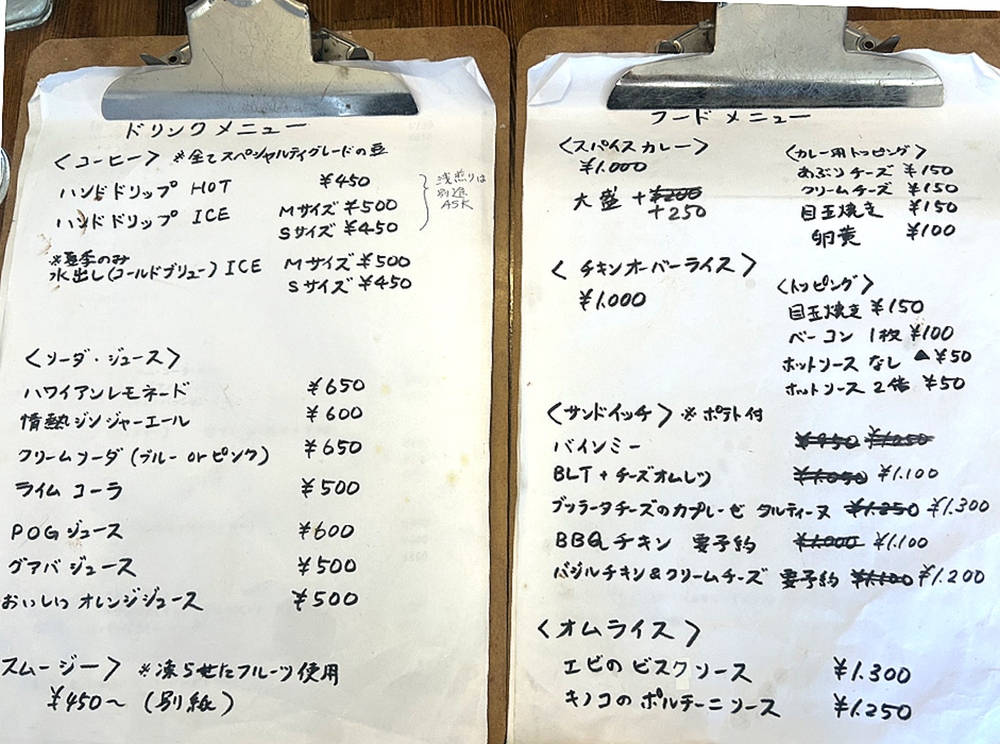 ドリンクメニュー
〈コーヒー〉 ※全てスペシャルティグレードの豆
ハンドドリップ HOT ¥450
ハンドドリップ ICE Mサイズ ¥500
Sサイズ ¥450
浅煎りは
別途
ASK
※夏季のみ
水出し(コールドブリュー) ICE Mサイズ ¥500
Sサイズ ¥450
〈ソーダ・ジュース〉
ハワイアンレモネード ¥650
情熱ジンジャーエール ¥600
クリームソーダ (ブルー or ピンク) ¥650
ライムコーラ ¥500
POGジュース ¥600
グアバジュース ¥500
おいしい オレンジジュース ¥500
スムージー〉 ※凍らせたフルーツ使用
¥450〜 (別紙)
フードメニュー
〈スパイスカレー〉
¥1.000
大盛 +¥200
+250
〈カレー用トッピング〉
あぶりチーズ ¥150
クリームチーズ ¥150
目玉焼き ¥150
卵黄 ¥100
〈チキンオーバーライス〉
¥1.000
〈トッピング〉
目玉焼き ¥150
ベーコン 1枚 ¥100
ホットソース なし ▲¥50
ホットソース 2倍 ¥50
〈サンドイッチ〉 ※ポテト付
バインミー ¥950 ¥1.050
BLT+チーズオムレツ ¥1.050 ¥1.100
ブッラータチーズのカプレーゼ タルティーヌ ¥1.250 ¥1.300
BBQチキン 要予約 ¥1.000 ¥1.100
バジルチキン&クリームチーズ 要予約 ¥1.100 ¥1.200
〈オムライス〉
エビのビスクソース ¥1.300
キノコのポルチーニソース ¥1.250